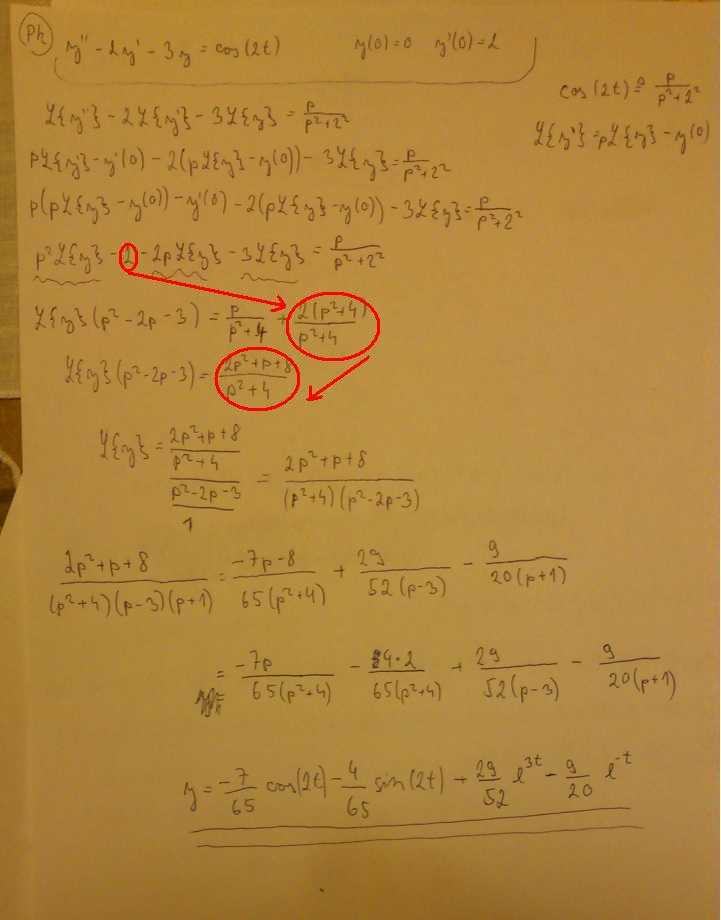 Př
y'' - 2y' - 3y = cos(2t)    y(0)=0  y'(0)=2
cos(2t) ≙ p/(p²+2²)
ℒ{y'} = pℒ{y} - y(0)
ℒ{y''} - 2ℒ{y'} - 3ℒ{y} = p/(p²+2²)
pℒ{y'} - y'(0) - 2(pℒ{y} - y(0)) - 3ℒ{y} = p/(p²+2²)
p(pℒ{y} - y(0)) - y'(0) - 2(pℒ{y} - y(0)) - 3ℒ{y} = p/(p²+2²)
p²ℒ{y} - 2 - 2pℒ{y} - 3ℒ{y} = p/(p²+2²)
ℒ{y}(p² - 2p - 3) = p/(p²+4) + 2(p²+4)/(p²+4)
ℒ{y}(p²-2p-3) = (2p²+p+8)/(p²+4)
ℒ{y} = ((2p²+p+8)/(p²+4))/((p²-2p-3)/1) = (2p²+p+8)/((p²+4)(p²-2p-3))
(2p²+p+8)/((p²+4)(p-3)(p+1)) = (-7p-8)/(65(p²+4)) + 29/(52(p-3)) - 9/(20(p+1))
= -7p/(65(p²+4)) - 4·2/(65(p²+4)) + 29/(52(p-3)) - 9/(20(p+1))
y = -7/65 cos(2t) - 4/65 sin(2t) + 29/52 e^{3t} - 9/20 e^{-t}